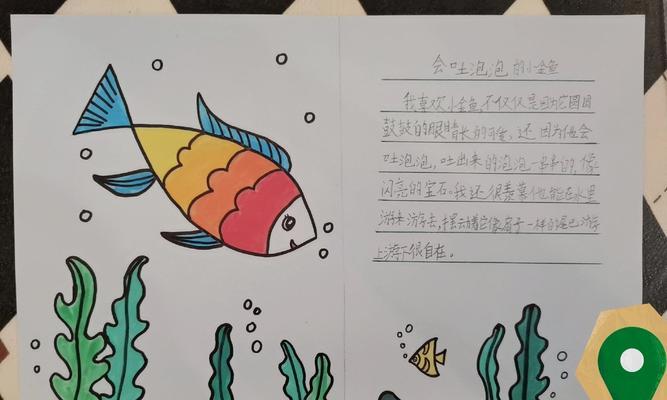 会吐泡泡的小金鱼
我喜欢小金鱼,不仅仅是因为它圆圆
鼓鼓的眼睛长的可爱,还因为他会
吐泡泡,吐出来的泡泡一串串的,像
闪亮的宝石。我还很羡慕他能在水里
游来游去,摆动着它像扇子一样的尾巴游
上游下很自在。